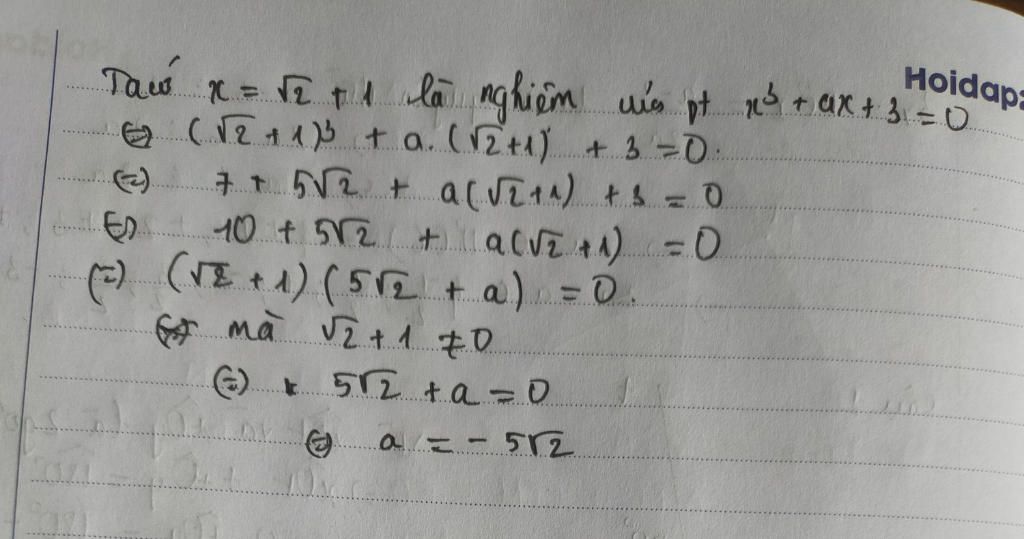 Hoidap
Ta có x = √2 + 1 là nghiệm của pt x³ + ax + 3 = 0
⇔ (√2 + 1)³ + a. (√2+1) + 3 = 0.
⇔ 7 + 5√2 + a(√2+1) + 3 = 0
⇔ 10 + 5√2 + a(√2+1) = 0
⇔ (√2 + 1) (5√2 + a) = 0.
mà √2 + 1 ≠ 0
⇔ 5√2 + a = 0
⇔ a = - 5√2